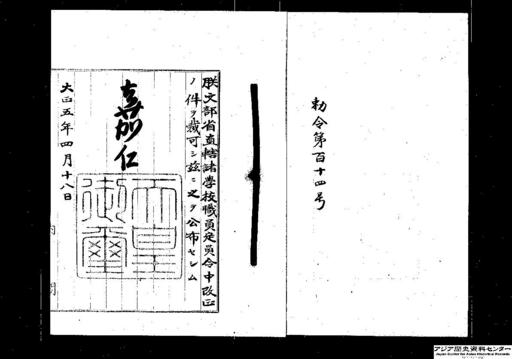 勅令第百十四号
朕文部省直轄諸学校職員定員令中改正
ノ件ヲ裁可シ茲ニ之ヲ公布セシム
嘉仁
天皇御璽
大正五年四月十八日
内閣
アジア歴史資料センター
Japan Center for Asian Historical Records